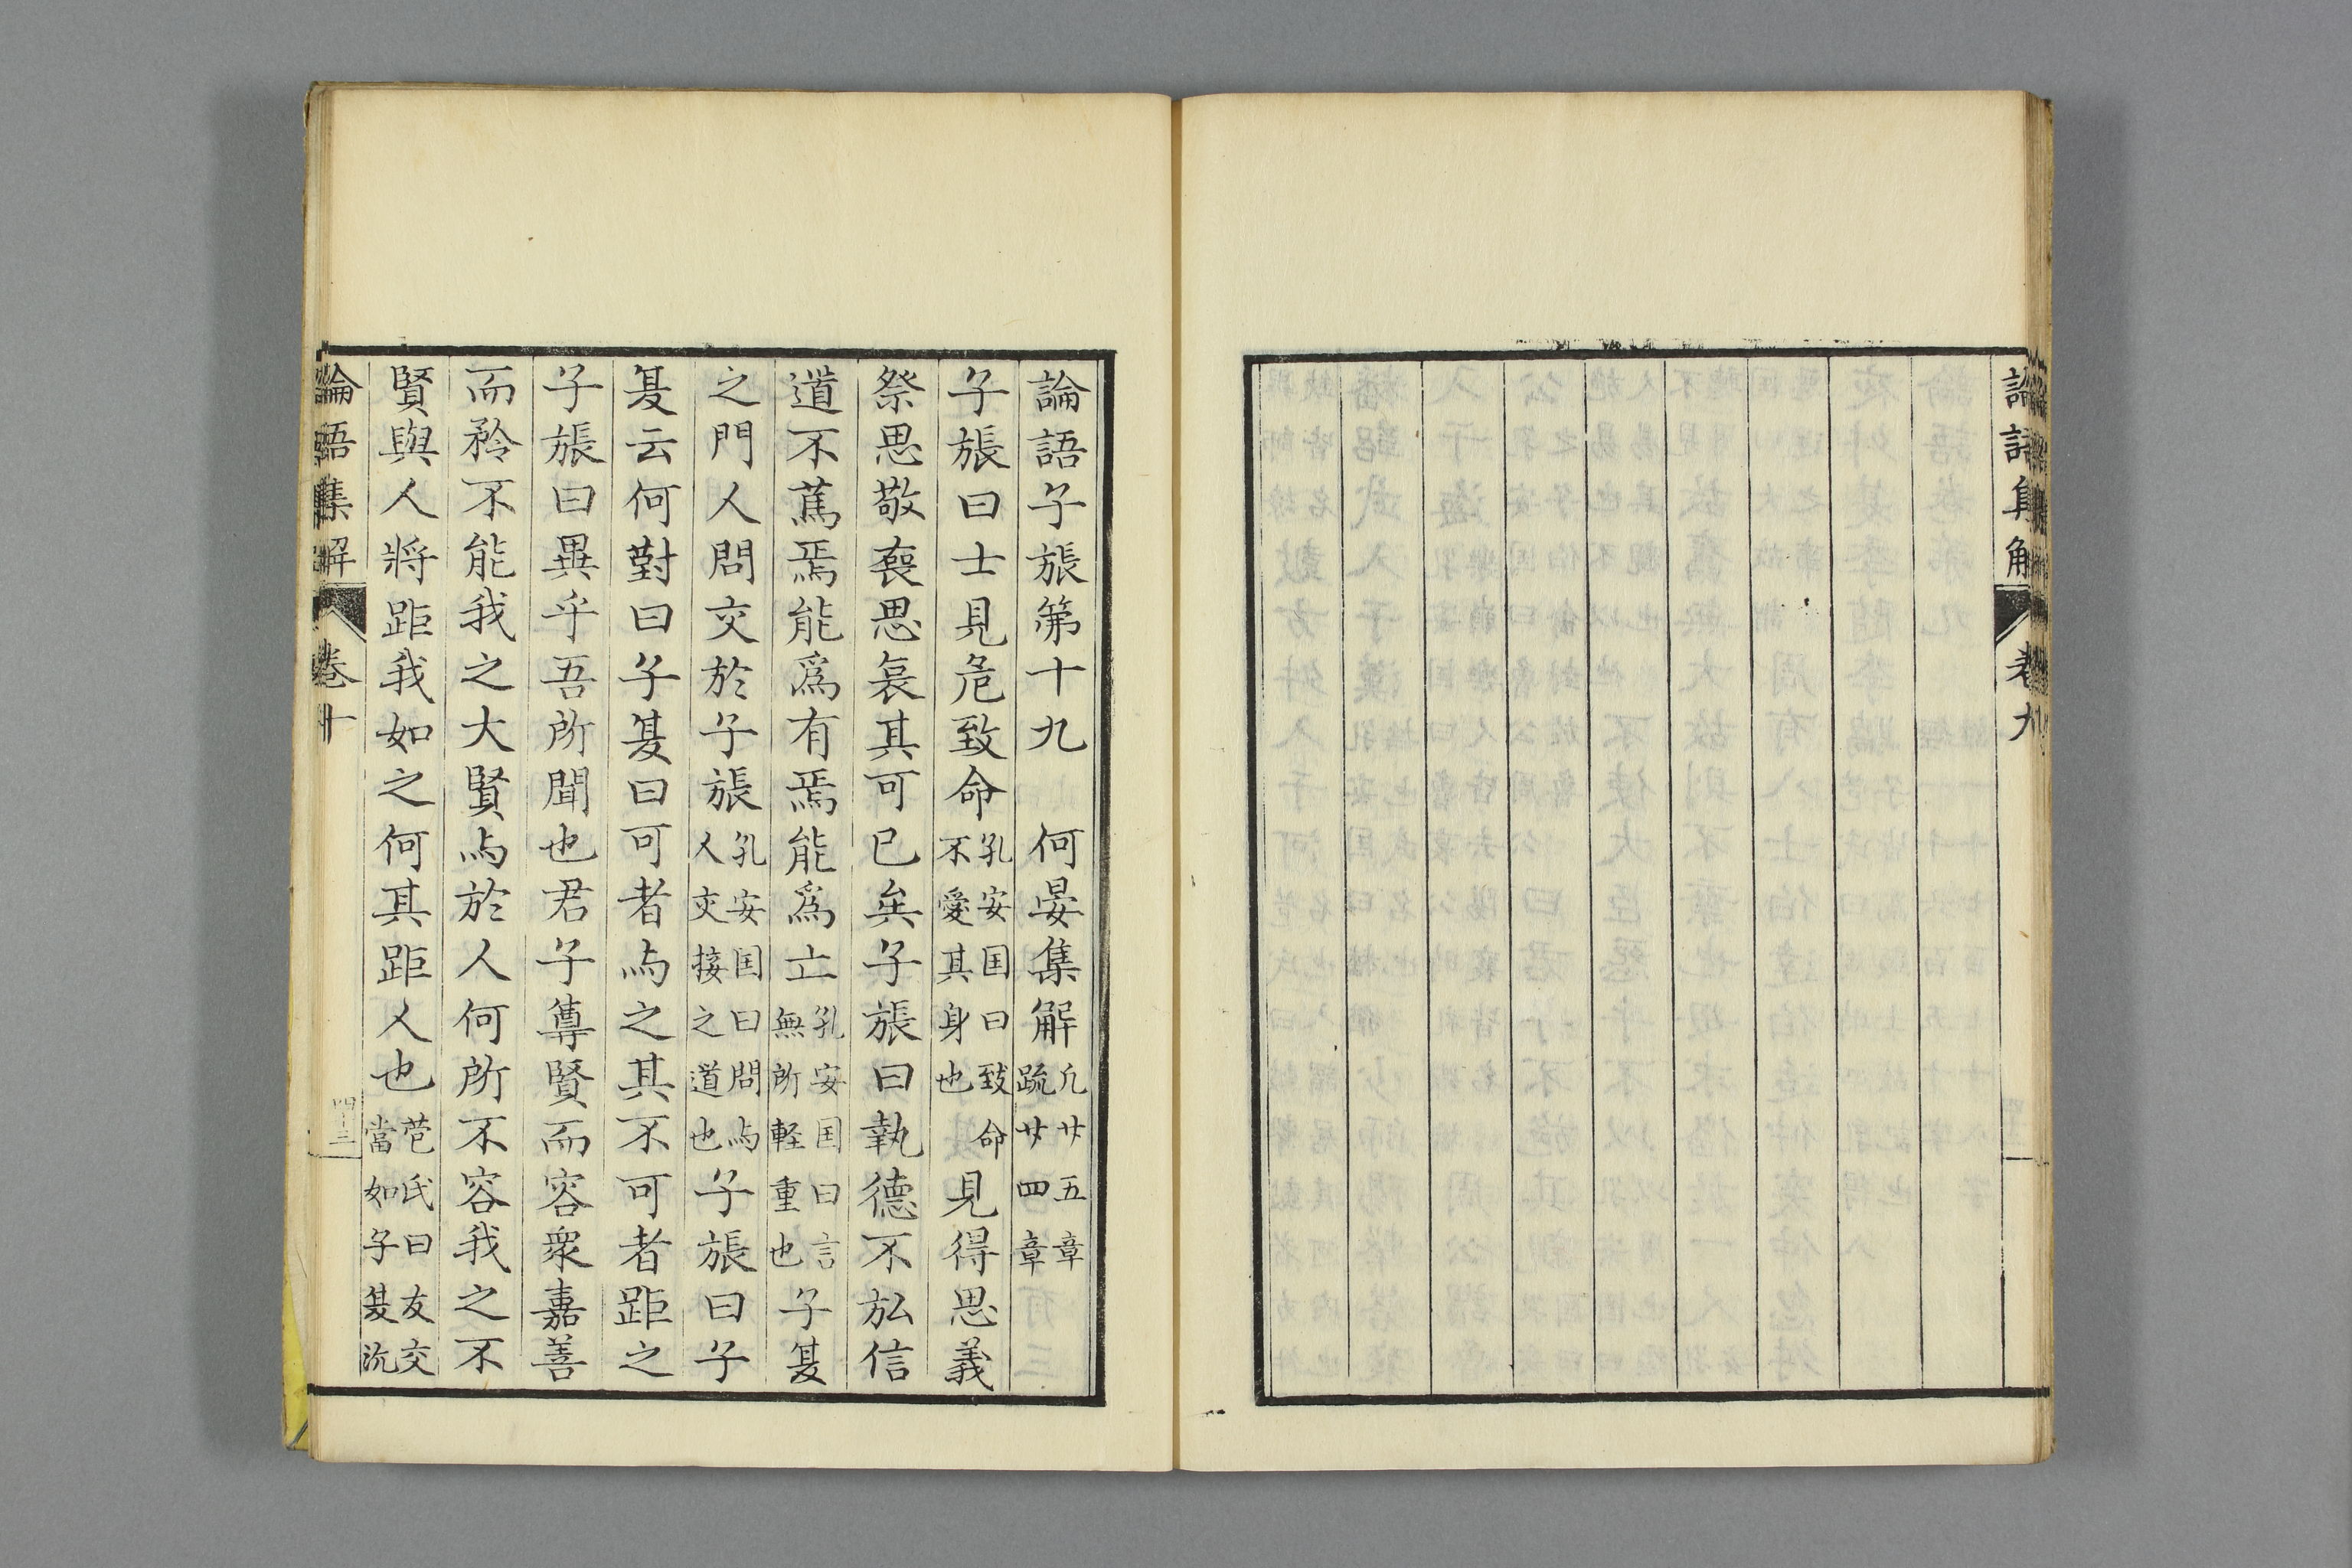 論語集解 卷九
論語子張第十九 何晏集解 凢廿五章
疏廿四章
子張曰士見危致命 孔安囯曰致命
不愛其身也 見得思義
祭思敬喪思哀其可已矣子張曰執德不弘信
道不萬焉能爲有焉能爲立 孔安囯曰言
無所軽重也 子夏
之門人問交於子張 孔安囯曰問与
人交接之道也 子張曰子
夏云何對曰子夏曰可者与之其不可者距之
子張曰異乎吾所聞也君子尊賢而容衆嘉善
而矜不能我之大賢与於人何所不容我之不
賢與人將距我如之何其距人也 苞氏曰友交
當如子夏汎
論語集解 卷十
四十三